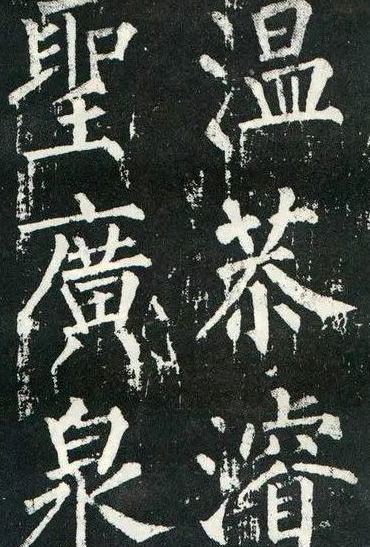 温恭濬
聖廣泉